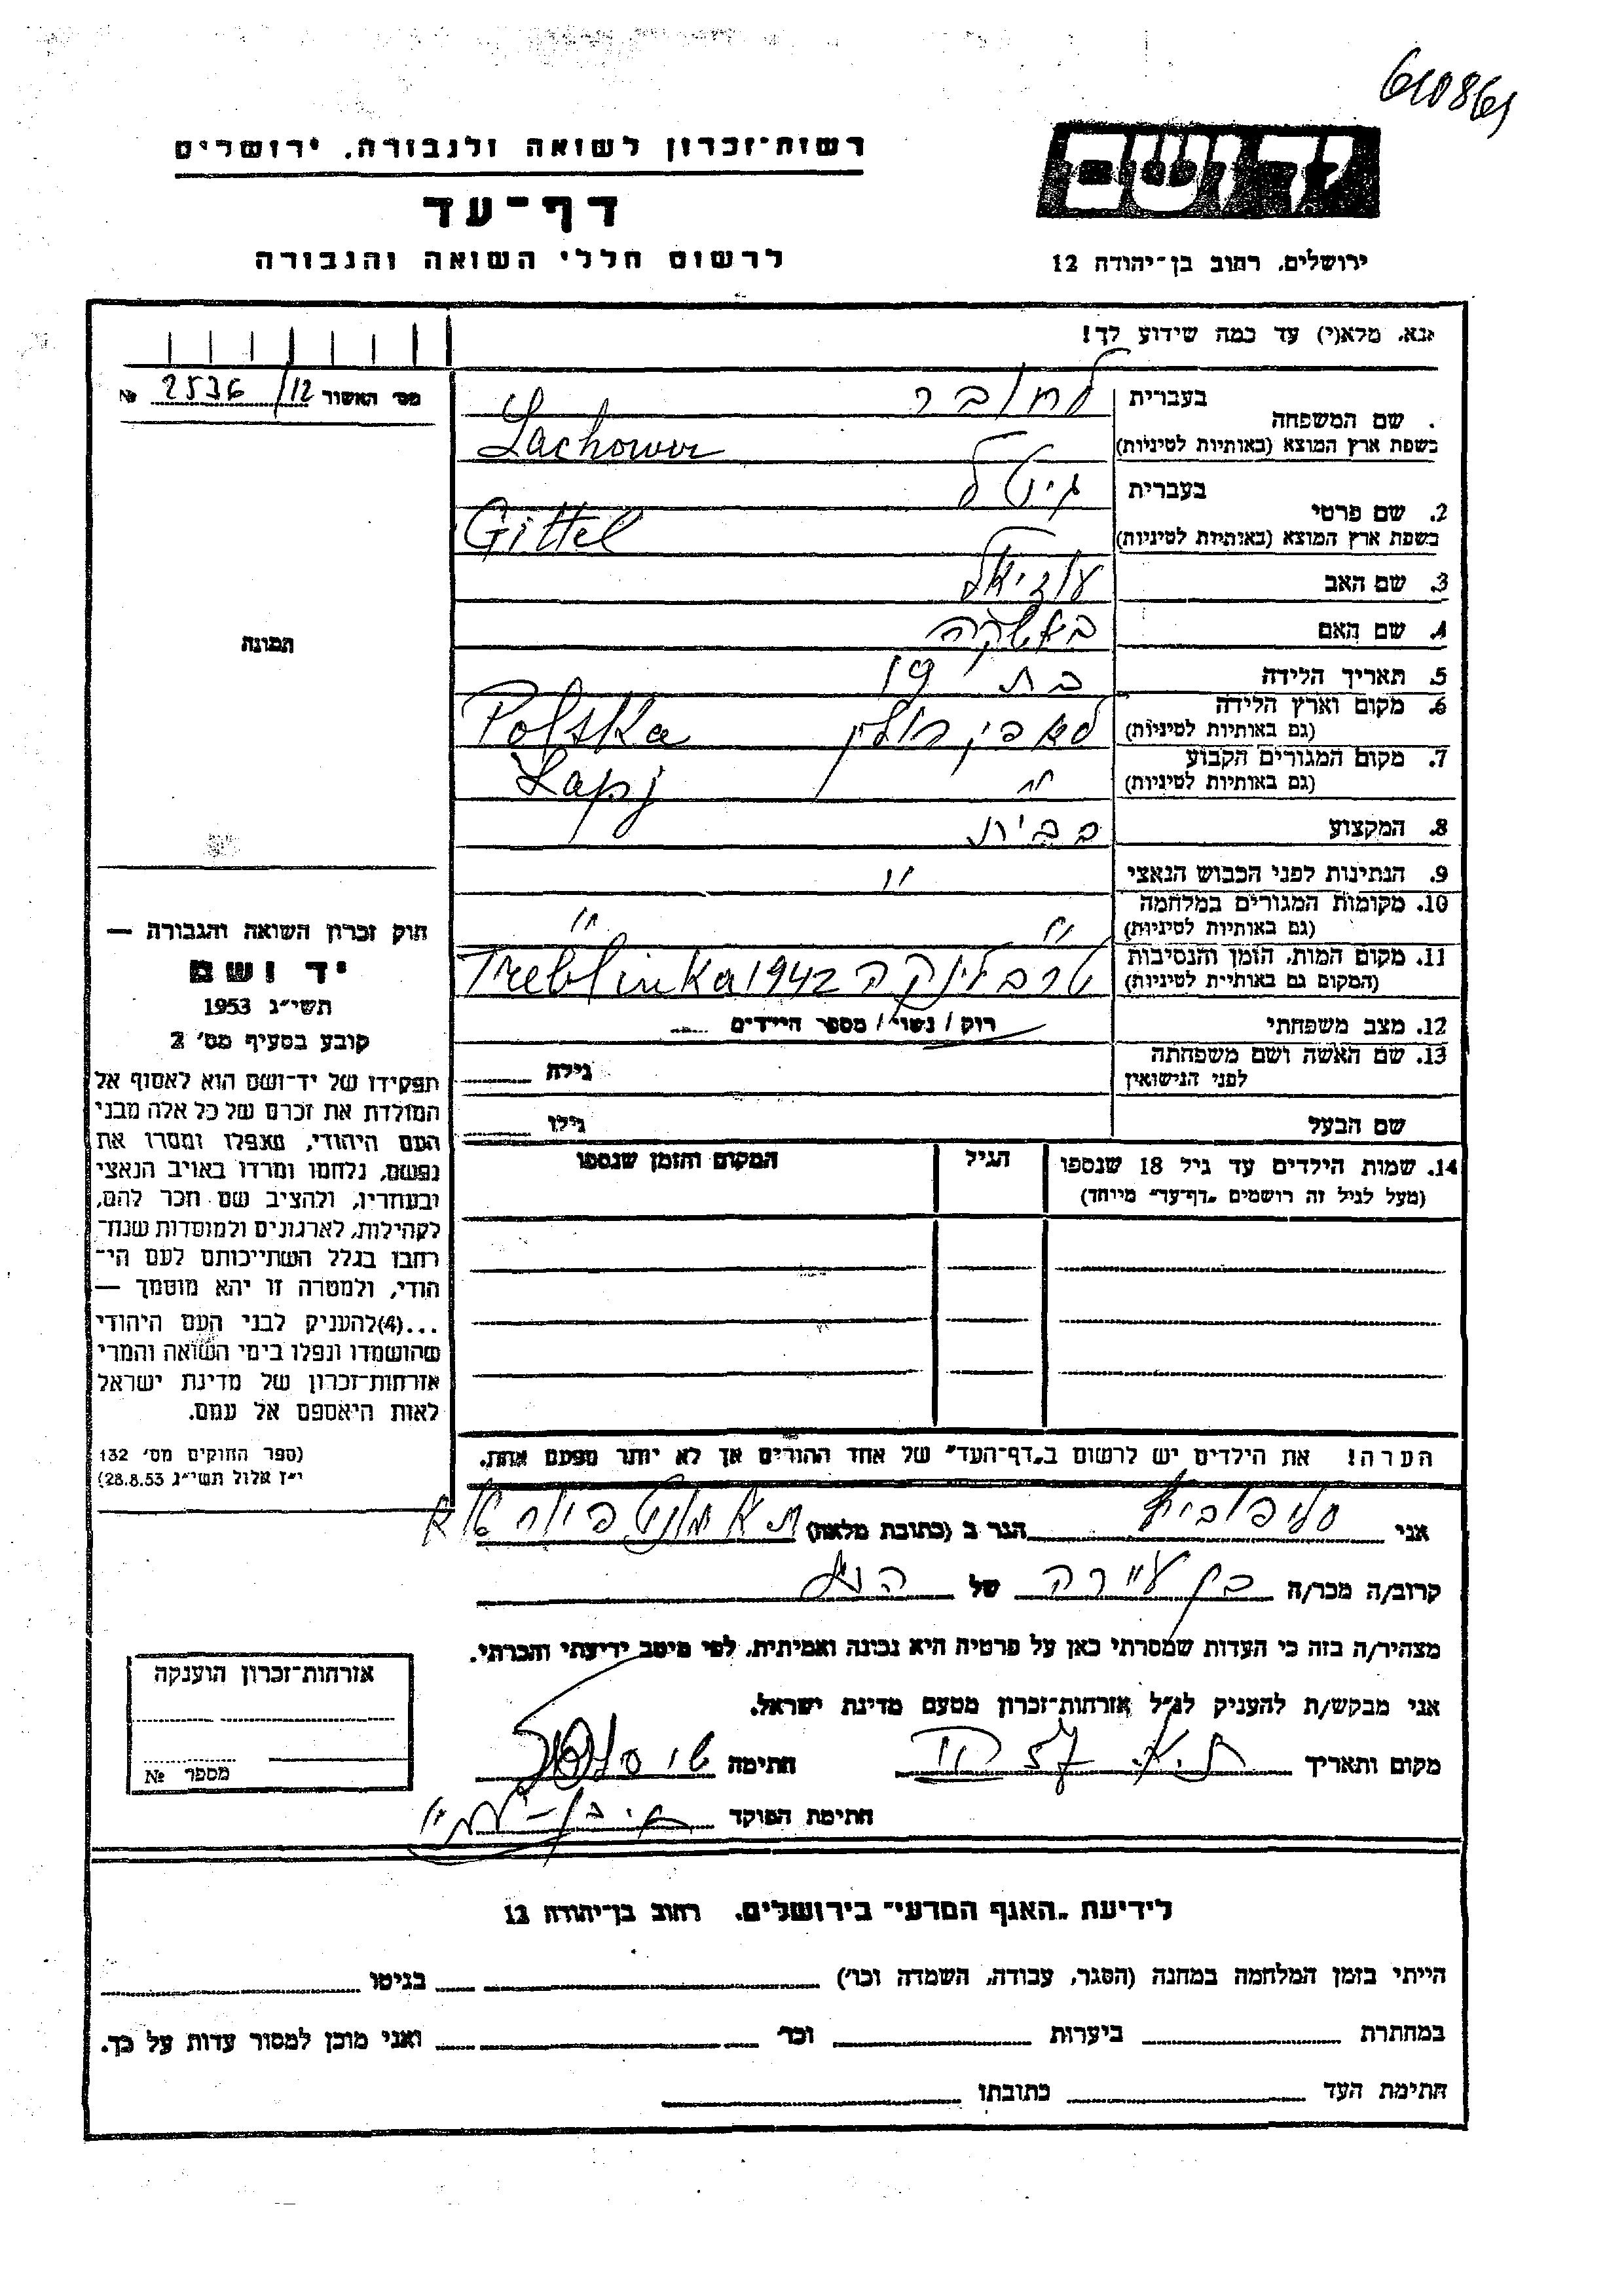 רשות־זכרון לשואה ולגבורה, ירושלים
דף־עד
לרשום חללי השואה והגבורה
יד ושם
ירושלים, רחוב בן־יהודה 12
אנא, מלא(י) עד כמה שידוע לך!
מס׳ האשור 12/ 2536 №
שם המשפחה
בעברית לחובר
בשפת ארץ המוצא (באותיות לטיניות) Lachower
2. שם פרטי
בעברית גיטל
בשפת ארץ המוצא (באותיות לטיניות) Gittel
3. שם האב
4. שם האם
5. תאריך הלידה בת 19
6. מקום וארץ הלידה
(גם באותיות לטיניות) פולין Polska
7. מקום המגורים הקבוע
(גם באותיות לטיניות) " Lapj
8. המקצוע בבית
9. הנתינות לפני הכבוש הנאצי "
10. מקומות המגורים במלחמה
(גם באותיות לטיניות) " "
11. מקום המות, הזמן והנסיבות
(המקום גם באותיות לטיניות) טרבלינקה 1942 Treblinka
12. מצב משפחתי רוק / נשוי / מספר הילדים
13. שם האשה ושם משפחתה
לפני הנישואין
גילה
שם הבעל
גילו
14. שמות הילדים עד גיל 18 שנספו
(מעל לגיל זה רושמים „דף־עד״ מיוחד)
הגיל
המקום והזמן שנספו
הערה! את הילדים יש לרשום ב„דף־העד״ של אחד ההורים אך לא יותר מפעם אחת.
תמונה
חוק זכרון השואה והגבורה —
יד ושם
תשי״ג 1953
קובע בסעיף מס׳ 2
תפקידו של יד־ושם הוא לאסוף אל
המולדת את זכרם של כל אלה מבני
העם היהודי, שנפלו ומסרו את
נפשם, נלחמו ומרדו באויב הנאצי
ובעוזריו, ולהציב שם וזכר להם,
לקהילות, לארגונים ולמוסדות שנח־
רחבו בגלל השתייכותם לעם הי־
הודי, ולמטרה זו יהא מוסמך —
...(4) להעניק לבני העם היהודי
שהושמדו ונפלו בימי השואה והמרי
אזרחות־זכרון של מדינת ישראל
לאות היאספם אל עמם.
(ספר החוקים מס׳ 132
י״ז אלול תשי״ג 28.8.53)
אני
הגר ב (כתובת מלאה)
קרוב/ה מכר/ה בן עיירה של הנ״ל
מצהיר/ה בזה כי העדות שמסרתי כאן על פרטיה היא נכונה ואמיתית, לפי מיטב ידיעתי והכרתי.
אני מבקש/ת להעניק לנ״ל אזרחות־זכרון מטעם מדינת ישראל.
מקום ותאריך
חתימה
חתימת הפוקד
אזרחות־זכרון הוענקה
מספר №
לידיעת „האגף המדעי״ בירושלים, רחוב בן־יהודה 12
הייתי בזמן המלחמה במחנה (הסגר, עבודה, השמדה וכו׳) בגיטו
במחתרת ביערות וכו׳ ואני מוכן למסור עדות על כך.
חתימת העד כתובתו